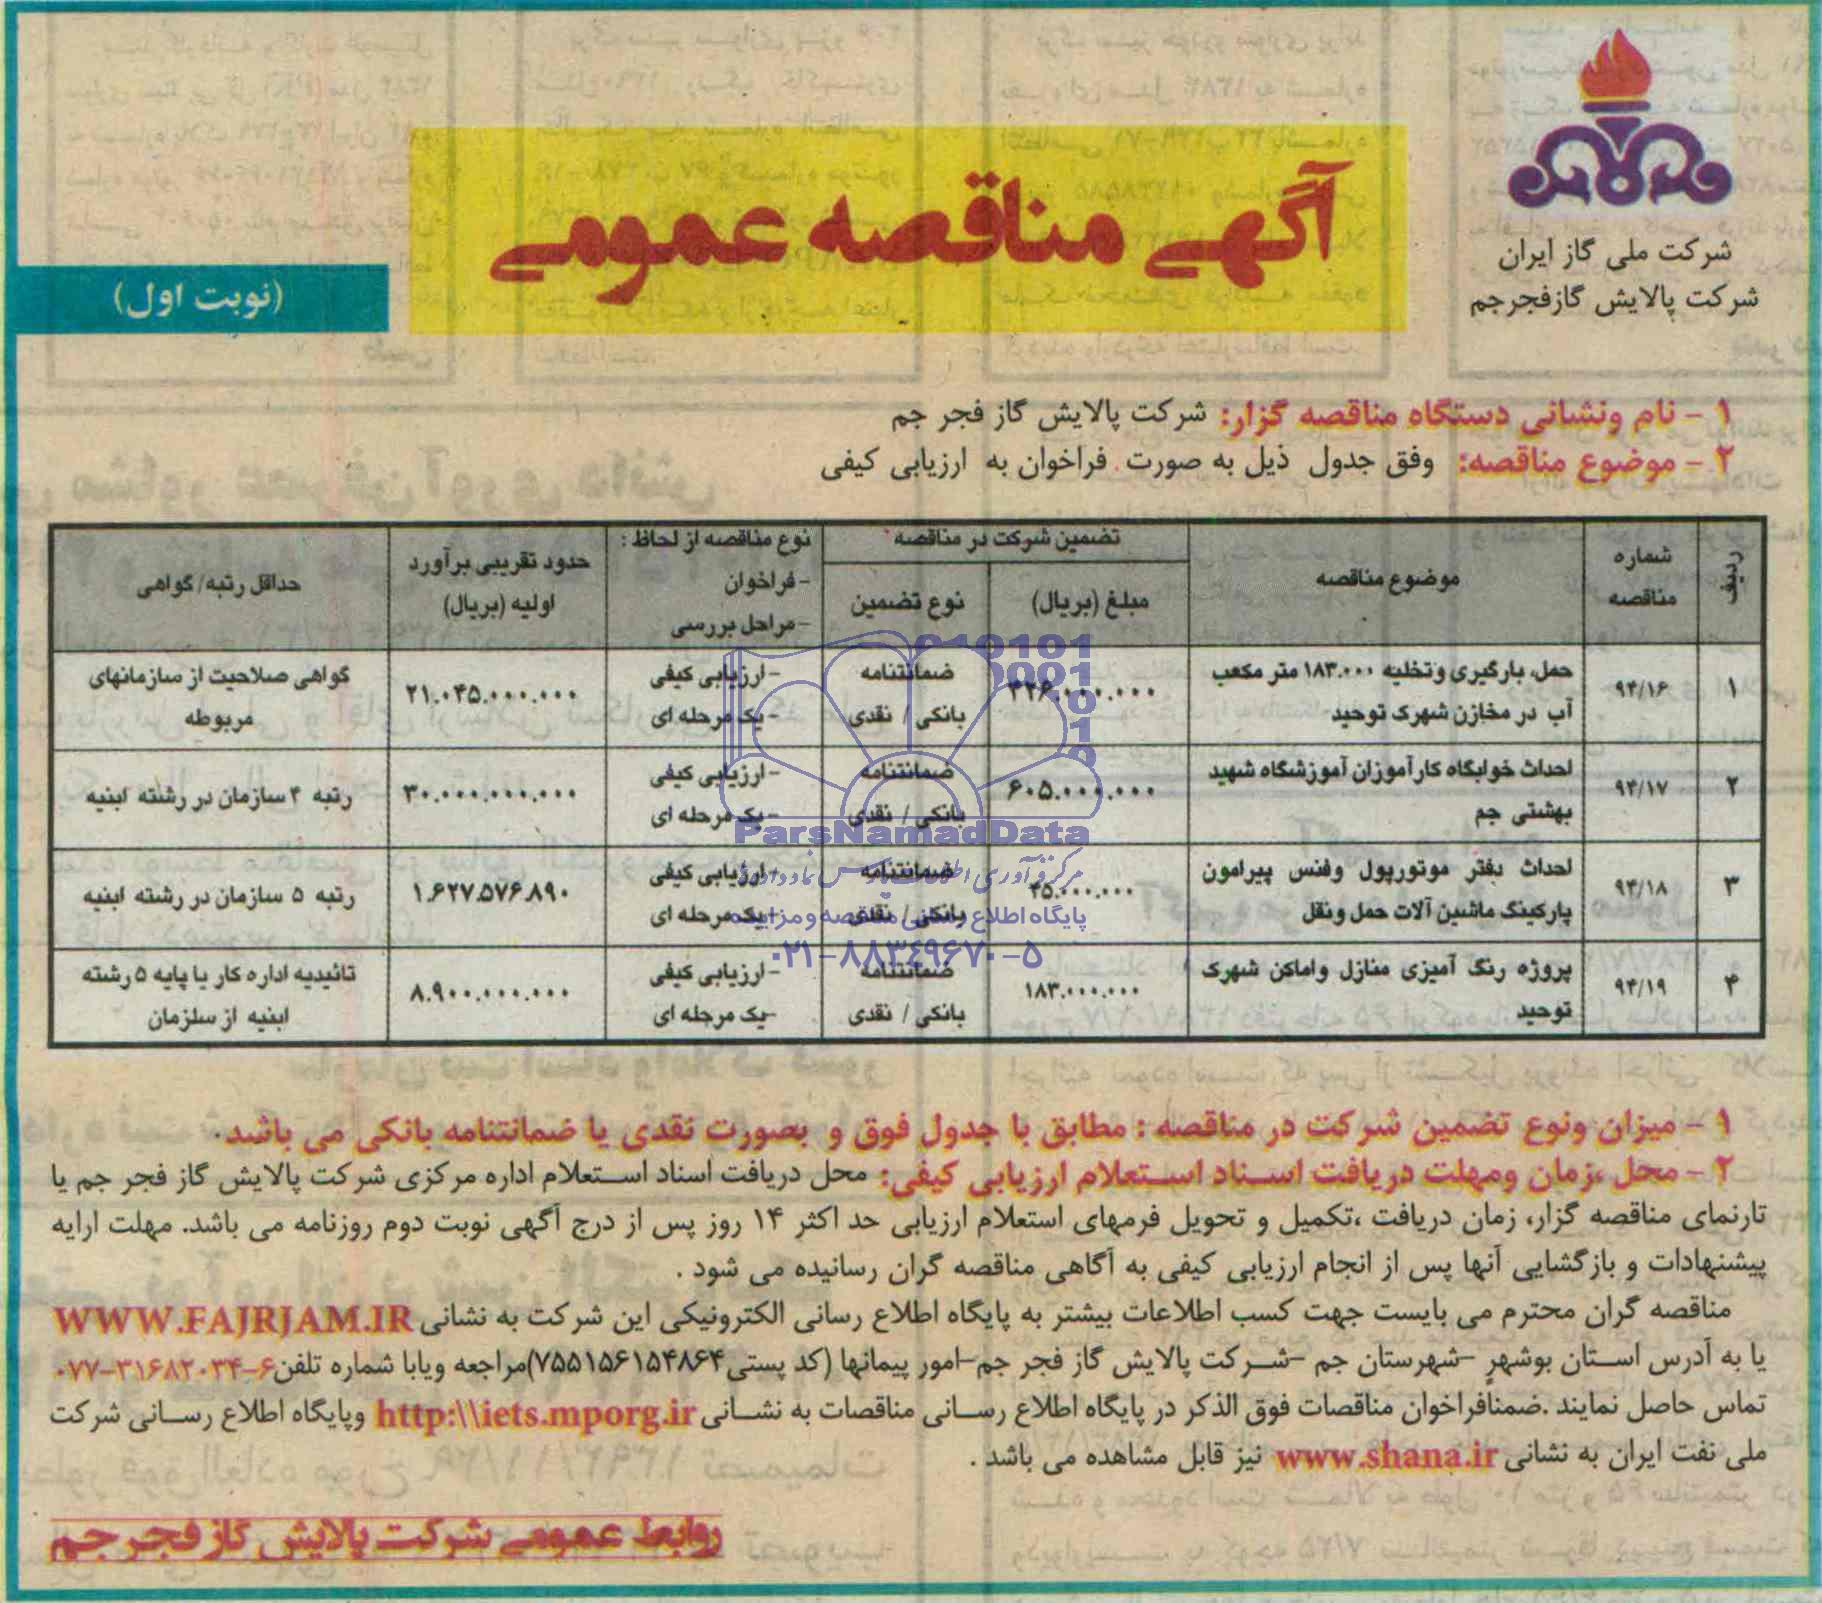 شرکت ملی گاز ایران
شرکت پالایش گازفجرجم
آگهی مناقصه عمومی
(نوبت اول)
۱ - نام ونشانی دستگاه مناقصه گزار: شرکت پالایش گاز فجر جم
۲ - موضوع مناقصه: وفق جدول ذیل به صورت فراخوان به ارزیابی کیفی
ردیف
شماره مناقصه
موضوع مناقصه
تضمین شرکت در مناقصه
مبلغ (بریال)
نوع تضمین
نوع مناقصه از لحاظ :
- فراخوان
- مراحل بررسی
حدود تقریبی برآورد
اولیه (بریال)
حداقل رتبه/ گواهی
۱
۹۴/۱۶
حمل، بارگیری وتخلیه ۱۸۳،۰۰۰ متر مکعب
آب در مخازن شهرک توحید
ضمانتنامه
بانکی / نقدی
- ارزیابی کیفی
- یک مرحله ای
۲۱،۰۴۵،۰۰۰،۰۰۰
گواهی صلاحیت از سازمانهای
مربوطه
۲
۹۴/۱۷
احداث خوابگاه کارآموزان آموزشگاه شهید
بهشتی جم
۶۰۵،۰۰۰،۰۰۰
ضمانتنامه
بانکی / نقدی
- ارزیابی کیفی
- یک مرحله ای
۳۰،۰۰۰،۰۰۰،۰۰۰
رتبه ۴ سازمان در رشته ابنیه
۳
۹۴/۱۸
احداث دفتر موتورپول وفنس پیرامون
پارکینگ ماشین آلات حمل ونقل
۴۵،۰۰۰،۰۰۰
ضمانتنامه
بانکی / نقدی
- ارزیابی کیفی
- یک مرحله ای
۱،۶۲۷،۵۷۶،۸۹۰
رتبه ۵ سازمان در رشته ابنیه
۴
۹۴/۱۹
پروژه رنگ آمیزی منازل واماکن شهرک
توحید
۱۸۳،۰۰۰،۰۰۰
ضمانتنامه
بانکی / نقدی
- ارزیابی کیفی
-یک مرحله ای
۸،۹۰۰،۰۰۰،۰۰۰
تائیدیه اداره کار یا پایه ۵ رشته
ابنیه از سازمان
ParsNamadData
پایگاه اطلاع رسانی مناقصه و مزایده
۰۲۱-۸۸۳۴۹۶۷۰-۵
۱ - میزان ونوع تضمین شرکت در مناقصه : مطابق با جدول فوق و بصورت نقدی یا ضمانتنامه بانکی می باشد.
۲ - محل ،زمان ومهلت دریافت اسناد استعلام ارزیابی کیفی: محل دریافت اسناد استعلام اداره مرکزی شرکت پالایش گاز فجر جم یا
تارنمای مناقصه گزار، زمان دریافت ،تکمیل و تحویل فرمهای استعلام ارزیابی حد اکثر ۱۴ روز پس از درج آگهی نوبت دوم روزنامه می باشد. مهلت ارایه
پیشنهادات و بازگشایی آنها پس از انجام ارزیابی کیفی به آگاهی مناقصه گران رسانیده می شود .
مناقصه گران محترم می بایست جهت کسب اطلاعات بیشتر به پایگاه اطلاع رسانی الکترونیکی این شرکت به نشانی WWW.FAJRJAM.IR
یا به آدرس استان بوشهر –شهرستان جم –شرکت پالایش گاز فجر جم–امور پیمانها (کد پستی۷۵۵۱۵۶۱۵۴۸۶۴)مراجعه ویابا شماره تلفن۶-۳۱۶۸۲۰۳۴-۰۷۷
تماس حاصل نمایند .ضمنافراخوان مناقصات فوق الذکر در پایگاه اطلاع رسانی مناقصات به نشانی http:\\iets.mporg.ir وپایگاه اطلاع رسانی شرکت
ملی نفت ایران به نشانی www.shana.ir نیز قابل مشاهده می باشد .
روابط عمومی شرکت پالایش گاز فجر جم